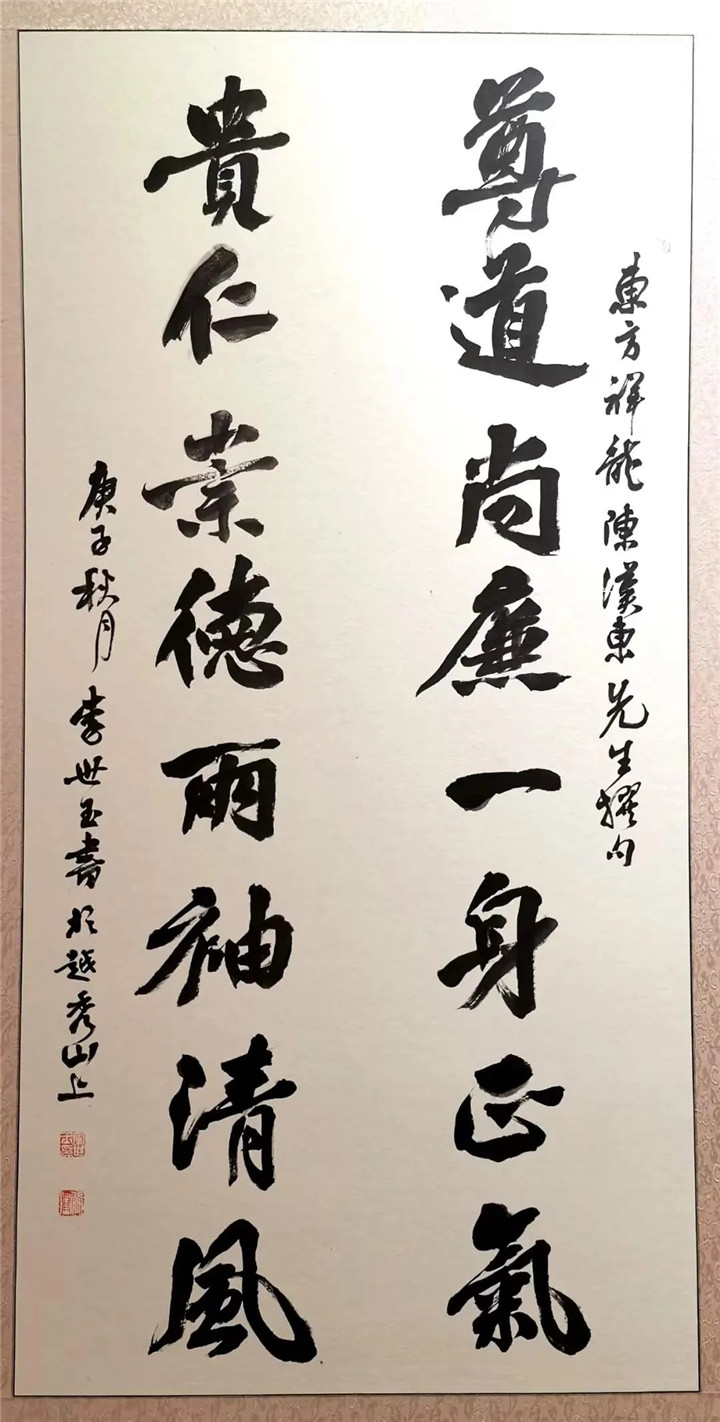 東方祥龍陳漢東先生撰句
尊道尚廉一身正氣
貴仁崇德兩袖清風
庚子秋月李世玉書於越秀山上